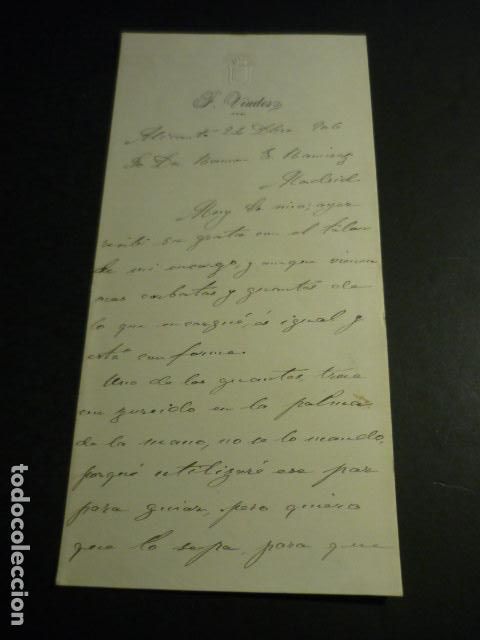 F. Viudes
Alicante 22 Dbre 906
Sr Dn Ramon G. Ramirez
Madrid
Muy Sr mio; ayer
recibi su grata con el talon
de mi encargo, y aunque vienen
mas corbatas y guantes de
lo que encargué, es igual y
está conforme.
Uno de los guantes, trae
un zurcido en la palma
de la mano, no se lo mando,
porqué utilizaré ese par
para guiar, pero quiero
que lo sepa, para que
todocoleccion